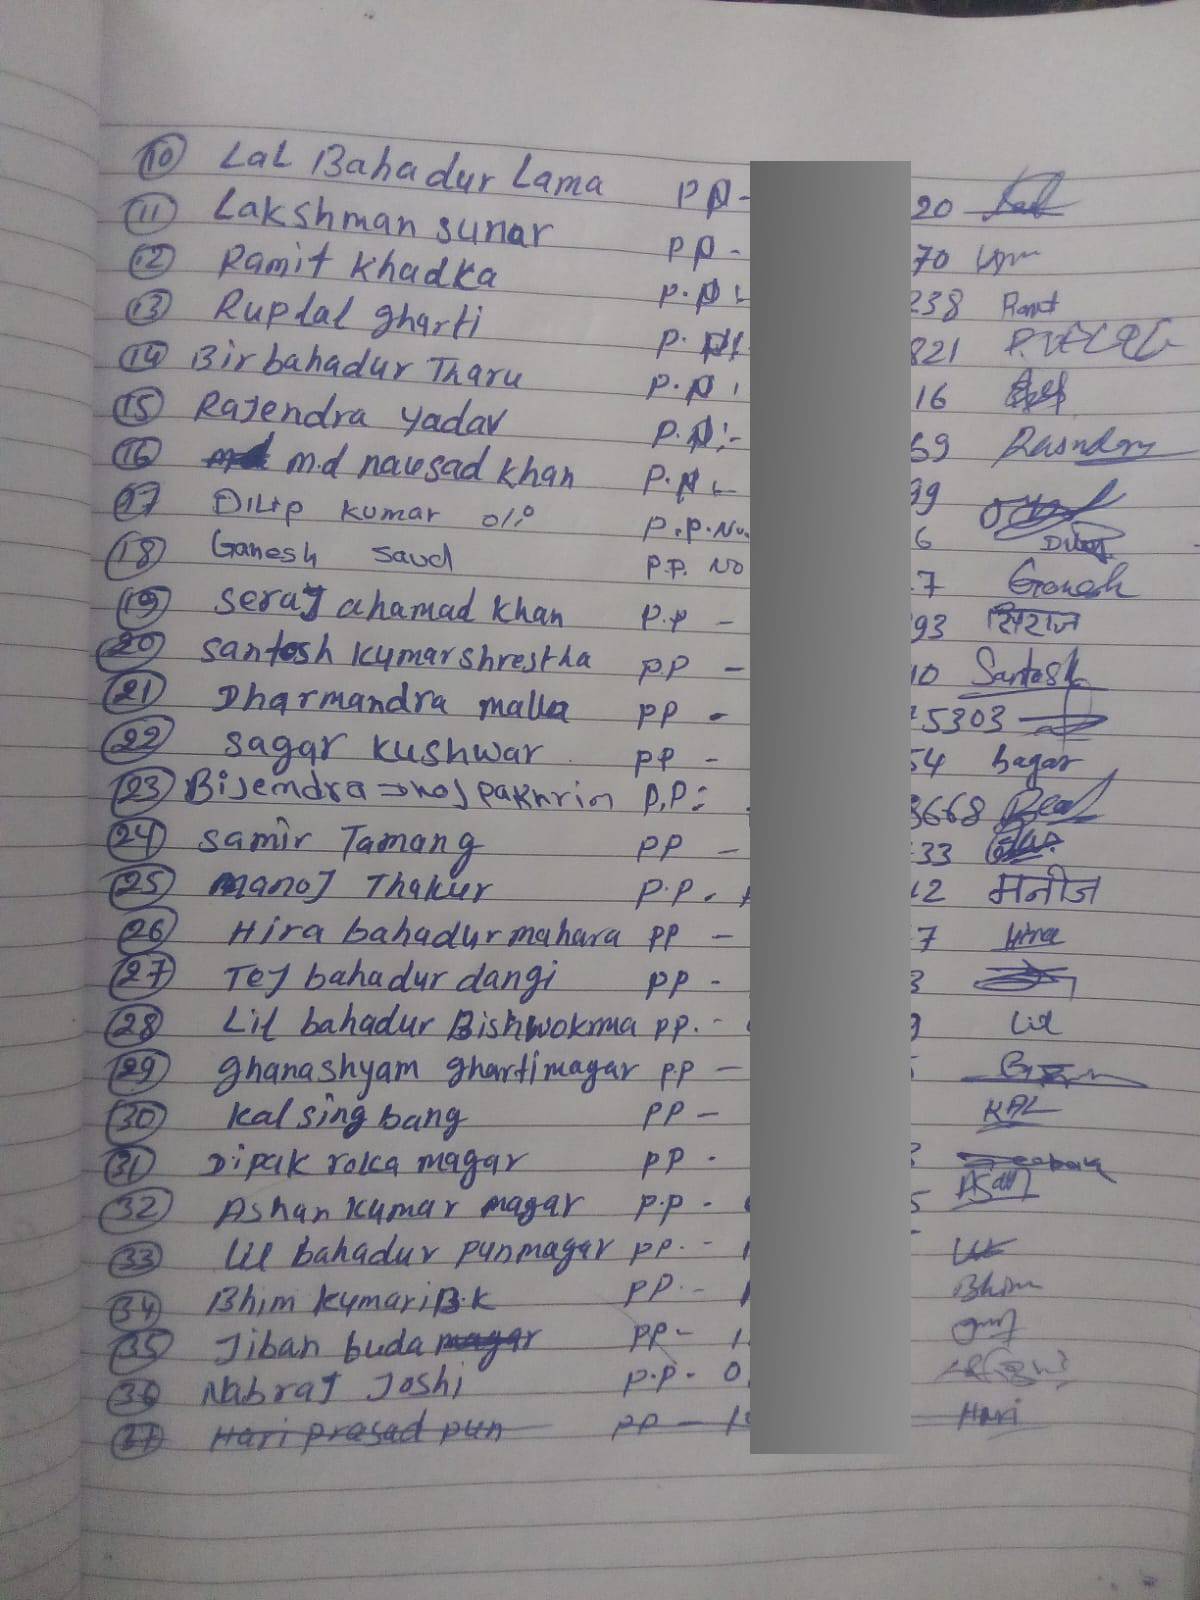 10 Lal Bahadur Lama PP- 20
11 Lakshman sunar PP - 70
12 Ramit Khadka P.P 238 Ramit
13 Ruplal gharti P. 821
14 Birbahadur Tharu P.P 16
15 Rajendra yadav P.P:- 69
16 m.d nausad khan P.P 99
17 Dilip kumar P.P.No. 6 Dilip
18 Ganesh saud P.P. No 7 Ganesh
19 seraj ahamad khan P.P - 93 सिराज
20 santosh kumar shrestha P.P - 10 Santosh
21 Dharmandra malla PP - 5303
22 sagar kushwar PP - 54 Sagar
23 Bijendra pakhrin P.P: 3668
24 samir Tamang PP - 33
25 manoj Thakur P.P. 2 मनोज
26 Hira bahadur mahara PP - 7 Hira
27 Tej bahadur dangi PP - 3
28 Lil bahadur Bishwokrma PP. - Lil
29 ghanashyam ghartimagar P.P -
30 kal sing bang PP - KAL
31 Dipak roka magar PP -
32 Ashan kumar magar P.P - 5
33 lil bahadur punmagar PP. -
34 Bhim kumari B.K PP. - Bhim
35 Jiban buda magar PP - 1
36 Nabraj Joshi P.P - 0
37 Hari prasad pun PP - 1 Hari